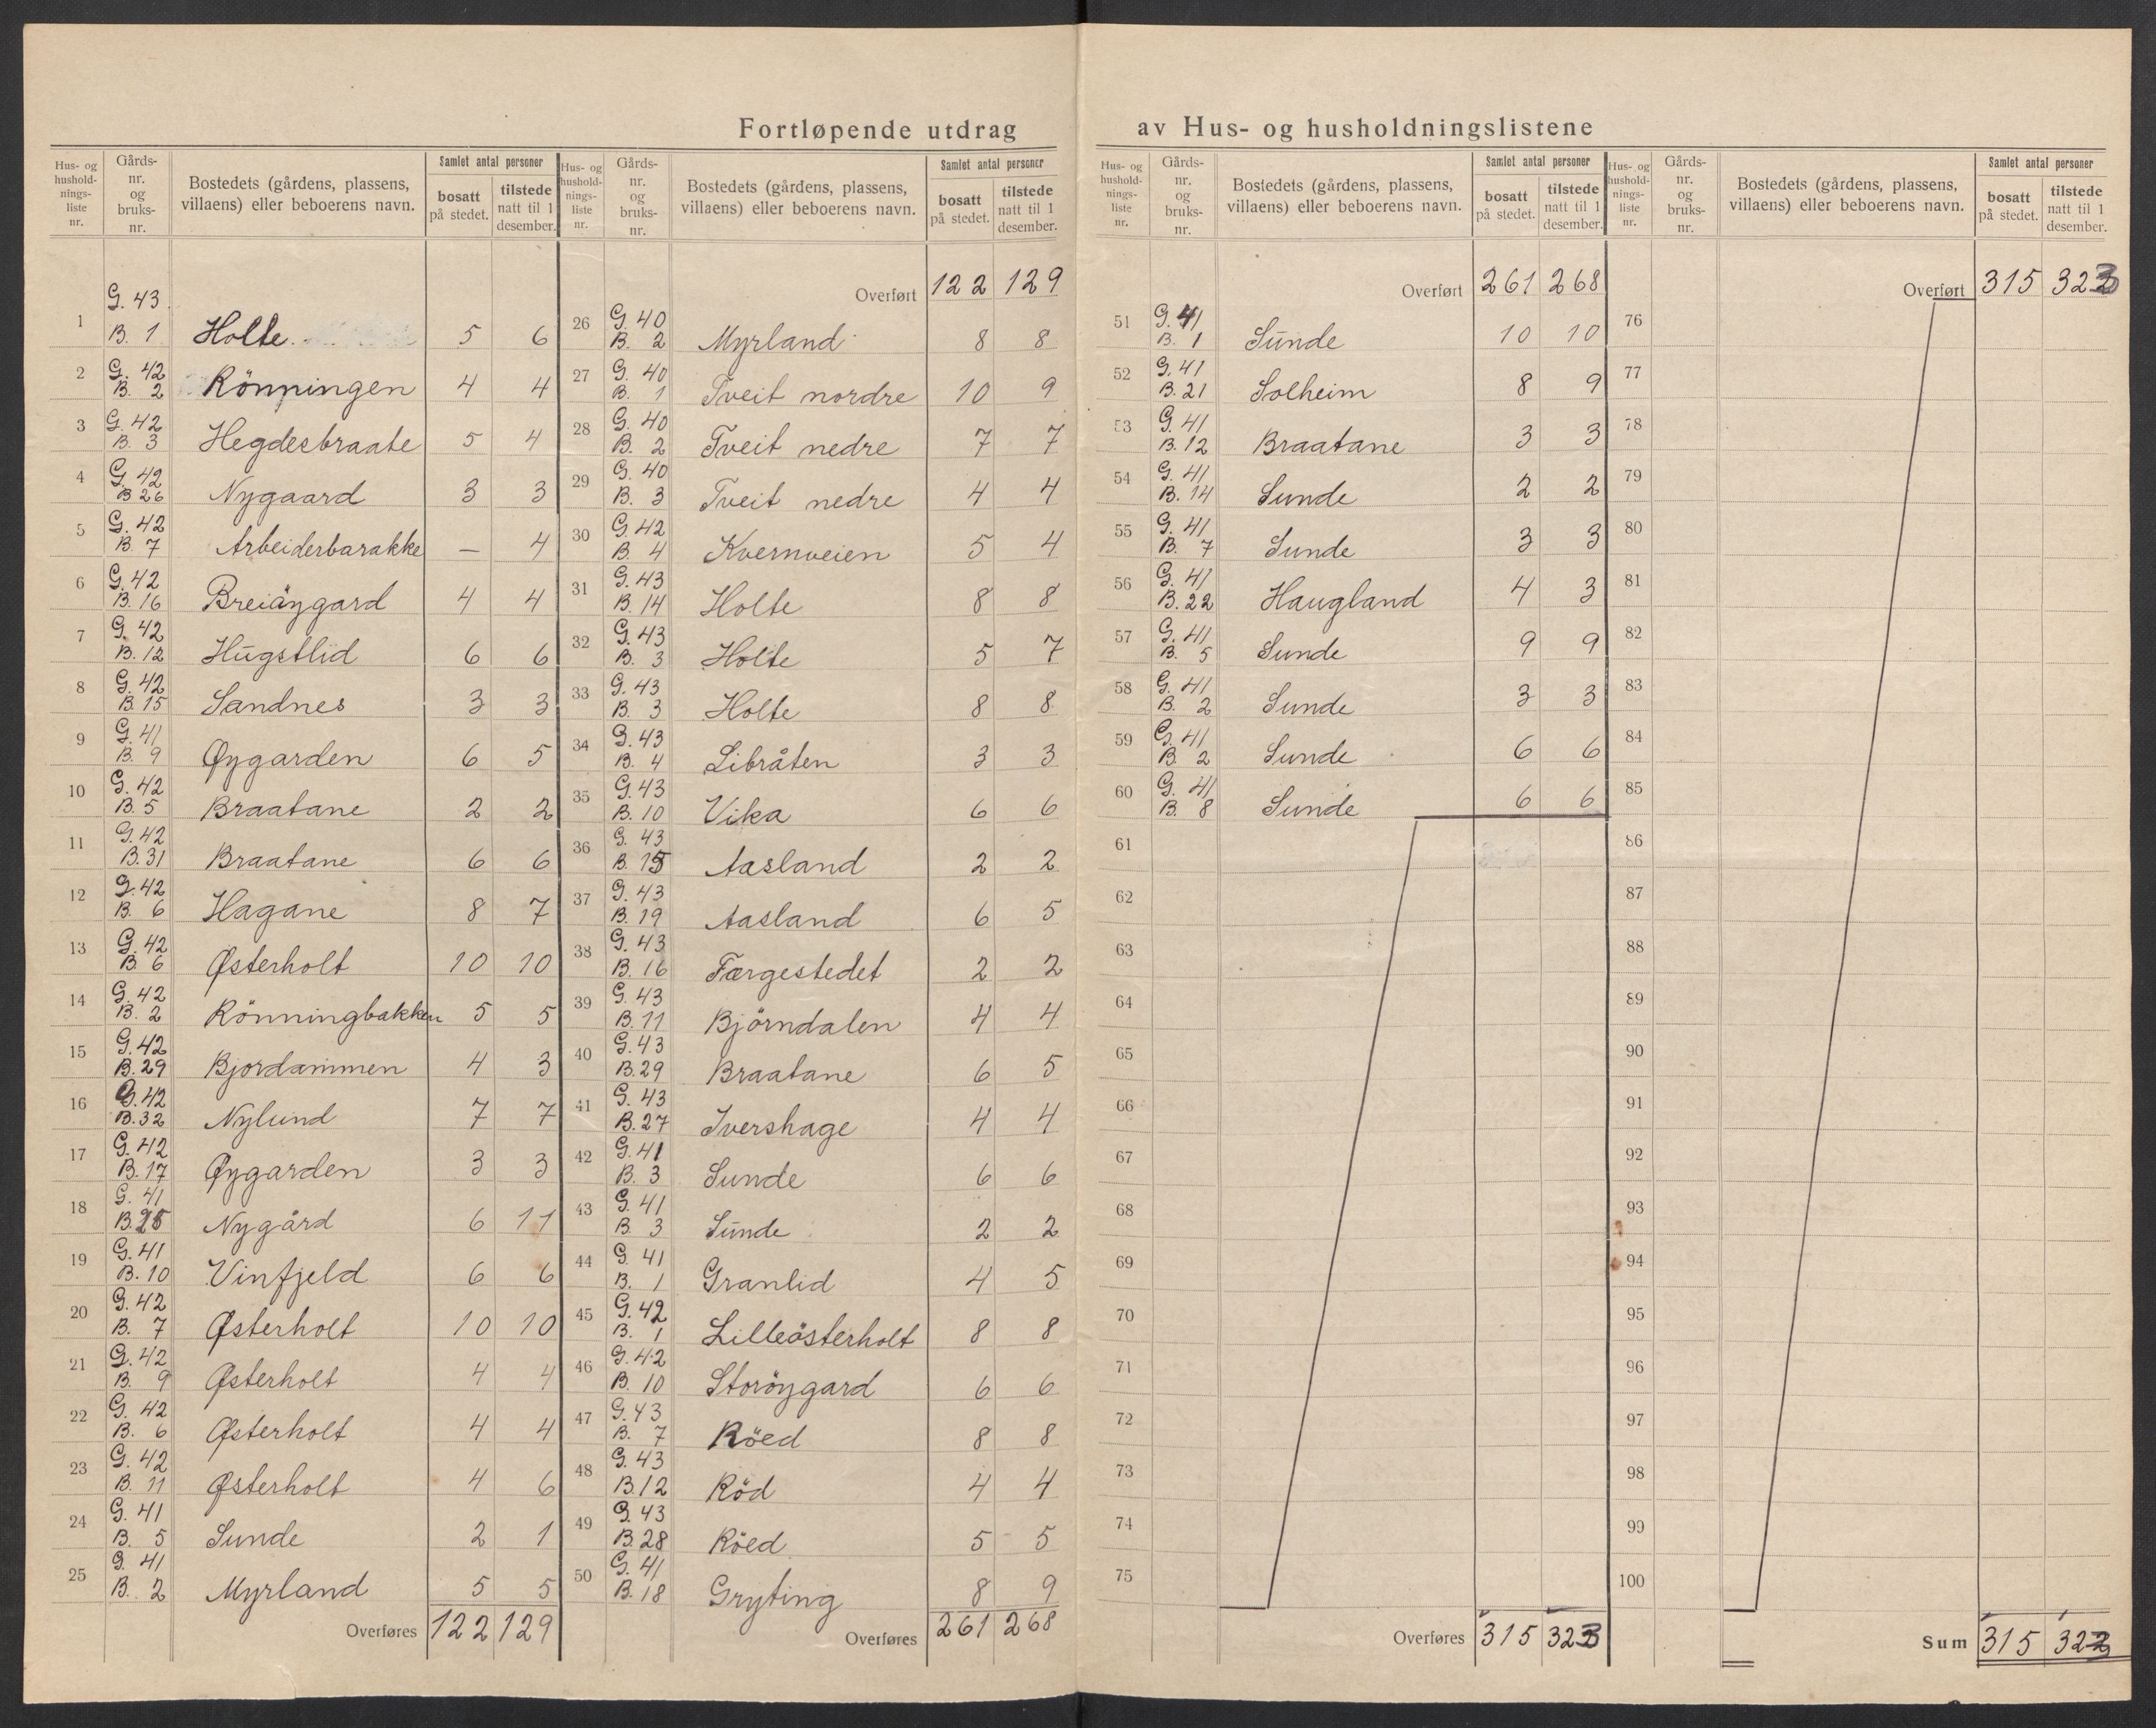 Fortløpende utdrag av Hus- og husholdningslistene
Hus- og husholdningsliste nr. | Gårds-nr. og bruks-nr. | Bostedets (gårdens, plassens, villaens) eller beboerens navn. | Samlet antal personer | bosatt på stedet. | tilstede natt til 1 desember.
1 G. 43. B. 1 Holte. 5 6
2 G. 42 B. 2 Rönningen 4 4
3 G. 42 B. 3 Hegdesbraate 5 4
4 G. 42 B 26 Nygaard 3 3
5 G. 42 B. 7 Arbeiderbarakke — 4
6 G. 42 B. 16 Breiöygard 4 4
7 G. 42 B. 12 Hugstlid 6 6
8 G. 42 B. 15 Sandnes 3 3
9 G. 41 B. 9 Øygarden 6 5
10 G. 42 B. 5 Braatane 2 2
11 G. 42 B. 31 Braatane 6 6
12 G. 42 B. 6 Hagane 8 7
13 G. 42 B. 6 Østerholt 10 10
14 G. 42 B. 2 Rönningbakken 5 5
15 G. 42 B. 29 Bjordammen 4 3
16 G. 42 B. 32 Nylund 7 7
17 G. 42 B. 17 Øygarden 3 3
18 G. 41 B. 25 Nygård 6 11
19 G. 41 B. 10 Vinfjeld 6 6
20 G. 42 B. 7 Østerholt 10 10
21 G. 42 B. 9 Østerholt 4 4
22 G. 42 B. 6 Østerholt 4 4
23 G. 42 B. 11 Østerholt 4 6
24 G. 41 B. 5 Sunde 2 1
25 G. 41 B. 2 Myrland 5 5
Overføres 122 129
Hus- og husholdningsliste nr. | Gårds-nr. og bruks-nr. | Bostedets (gårdens, plassens, villaens) eller beboerens navn. | Samlet antal personer | bosatt på stedet. | tilstede natt til 1 desember.
Overført 122 129
26 G. 40 B. 2 Myrland 8 8
27 G. 40 B. 1 Tveit nordre 10 9
28 G. 40 B. 2 Tveit nedre 7 7
29 G. 40 B. 3 Tveit nedre 4 4
30 G. 42 B. 4 Kvernveien 5 4
31 G. 43 B. 14 Holte 8 8
32 G. 43 B. 3 Holte 5 7
33 G. 43 B. 3 Holte 8 8
34 G. 43 B. 4 Libråten 3 3
35 G. 43 B. 10 Vika 6 6
36 G. 43 B. 15 Aasland 2 2
37 G. 43 B. 19 Aasland 6 5
38 G. 43 B. 16 Færgestedet 2 2
39 G. 43 B. 11 Björndalen 4 4
40 G. 43 B. 29 Braatane 6 5
41 G. 43 B. 27 Ivershage 4 4
42 G. 41 B. 3 Sunde 6 6
43 G. 41 B 3 Sunde 2 2
44 G 41 B. 1 Granlid 4 5
45 G. 42 B. 1 Lilleösterholt 8 8
46 G. 42 B. 10 Storöygard 6 6
47 G. 43 B. 7 Röed 8 8
48 G. 43 B. 12 Röd 4 4
49 G. 43 B. 28 Röed 5 5
50 G. 41 B. 18 Gryting 8 9
Overføres 261 268
Hus- og husholdningsliste nr. | Gårds-nr. og bruks-nr. | Bostedets (gårdens, plassens, villaens) eller beboerens navn. | Samlet antal personer | bosatt på stedet. | tilstede natt til 1 desember.
Overført 261 268
51 G. 41 B. 1 Sunde 10 10
52 G. 41 B. 21 Solheim 8 9
53 G. 41 B. 12 Braatane 3 3
54 G. 41 B. 14 Sunde 2 2
55 G. 41 B. 7 Sunde 3 3
56 G. 41 B. 22 Haugland 4 3
57 G. 41 B. 5 Sunde 9 9
58 G. 41 B. 2 Sunde 3 3
59 G. 41 B. 2 Sunde 6 6
60 G. 41 B. 8 Sunde 6 6
61
62
63
64
65
66
67
68
69
70
71
72
73
74
75
Overføres 315 323
Hus- og husholdningsliste nr. | Gårds-nr. og bruks-nr. | Bostedets (gårdens, plassens, villaens) eller beboerens navn. | Samlet antal personer | bosatt på stedet. | tilstede natt til 1 desember.
Overført 315 323
76
77
78
79
80
81
82
83
84
85
86
87
88
89
90
91
92
93
94
95
96
97
98
99
100
Sum 315 322